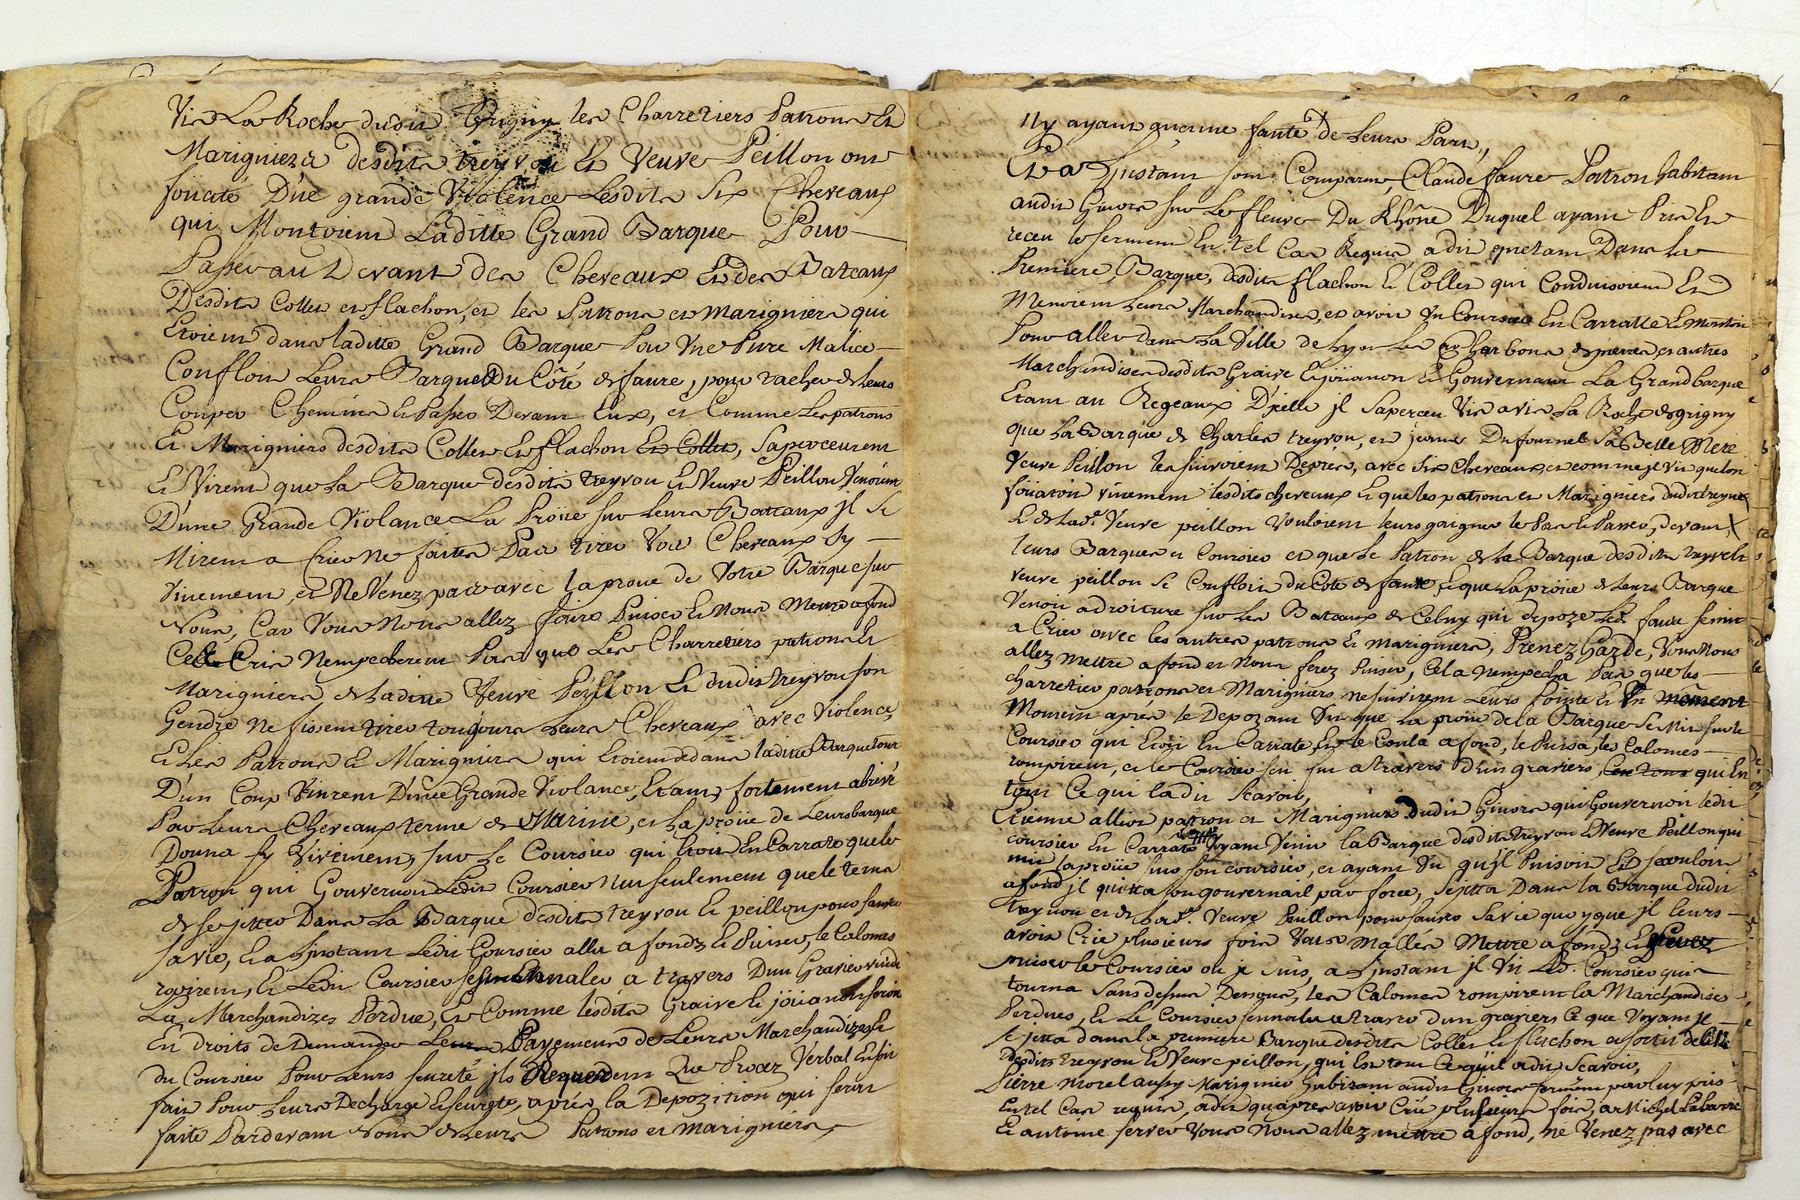 Vis La Roche dudit Grigny les Charretiers Patrons Et
Mariginiers desdits treyvou Et Veuve Peillon ont
foueté D'ue grande Violence Lesdits Six Chevaux
qui Montoient Laditte Grand Barque Pour
Passer au Devant des Chevaux Et des Bateaux
Desdits Collet et flachon, et les Patrons et Marigniers qui
Etoient dans laditte Grand Barque Par Une Pure Malice
Confloit Leurs Barque Du Côté de faure, pour tacher de Leurs
Couper Chemins Et Passer Devant Eux, et Comme Les patrons
Et Marigniers desdits Collet Et flachon Et Collet, Saperceurent
Et Virent que La Barque desdits treyvou Et Veuve Peillon Venoient
D'une Grande Violance La Proüe sur Leurs Bateaux jl Se
Mirent a Crier ne faites Pas tirer Vos Chevaux Sy
Vivement, et Ne Venez pas avec la proue de Votre Barque sur
Nous, Car Vous Nous allez faire Puiser Et Nous Mettre a fond
Cris N'empecherent Pas que Les Charretiers patrons Et
Marigniers de laditte Veuve Peillon Et dudit treyvou son
Gendre ne fissent tirer toujours Leurs Chevaux avec Violence,
Et Les Patrons Et Marigniers qui Etoient dans laditte Barque tout
D'un Coup Vinrent D'une Grande Violance, Etant fortement abrivé
Par Leurs Chevaux terme de Marine, et La proüe de Leurs barque
Donna sy Vivement, sur Le Coursier qui Etoit En Carrate que le
Patron qui Gouvernoit Ledit Coursier Neu seulement que le tems
de se jetter Dans La Barque desdits treyvou Et peillon pour sauver
sa vie, Et a Linstant Ledit Coursier alla a fondz Et Puiser, le Calomes
rompirent, Et Ledit Coursier aler a travers Dun Gravier
La Marchandizes Perdue, Et Comme Lesdits Graive Et joüanon seront
En droits de Demander Leurs Payements de Leurs Marchandizes Et
du Coursier Pour Leurs seureté jls Requerent Que Procez Verbal En soit
fait Pour Leurs Decharge Et seureté, aprés la Depozition qui seront
faite Pardevant Nous de Leurs Patrons et marigniers,
Ny ayant aucune faute de Leurs Part,,
Et a Linstant sont Comparut, Claude faure Patron habitant
audit Givors sur Le fleuve Du Rhône Duquel ayant Pris Et
receu le serment En tel Cas Requis a dit quetant Dans La
Premiere Barque, desdits flachon Et Collet qui Conduisoient Et
Menoient Leurs Marchandises, et avoir Un Coursier En Carratte Et Montoit
Pour aller dans La Ville de Lyon Les Charbons de pierres et autres
Marchandises desdits Graive Et joüanon Et Gouvernant La Grand barque
Etant au Regeaux D'jcelle jl Saperceu Vis a vis La Roche de grigny
que La Barque de Charles treyvou, et jeanne Dufournel Sa Belle Mere
Veuve Peillon Les suivoient De près, avec Six Chevaux et comme je Vis que lon
foüatoit vivement lesdits chevaux Et que les patrons et Marigniers dudit treyvou
Et de Lad.e Veuve peillon Vouloient leurs gaigner le Pas Et Passer, devant
leurs Barques et Coursier et que Le Patron de La Barque desdits treyvou Et
veuve peillon Se Confloit du Coté de faure Et que La proüe de Leurs Barque
Venoit a droiture sur Les Bateaux de Celuy qui depoze Led. faure se mit
a Crier avec les autres patrons Et marigniers, Prenez Garde, Vous Nous
allez mettre a fond et Nous ferez Puiser, Cela N'empecha Pas que les
charretier patrons et Marigniers ne suivirent Leurs Pointe Et Un moment
Moment aprés le Depozant Vit que La proüe de la Barque Se Mit sur le
Coursier qui Etoit En Carrate, Et le Coula a fond, le Puisa, les Calomes
rompirent, et le Coursier sen fut a travers D'un graviers, qui Est
tout Ce qui la dit Scavoir,
Etienne allior patron Et Marignier dudit Givors qui Gouvernoit ledit
coursier En Carrate Voyant Venir la Barque desdits treyvou Et Veuve Peillon qui
mit la proüe sur son coursier, et ayant Vu qu'jl Puisoit Et Se couloit
a fond jl quitta son gouvernail par force, Se jetta Dans la Barque dudit
treyvou et de Lad.e Veuve Peuillon pour sauver Sa Vie quoyque jl leurs
avoit Crié plusieurs fois Vous M'allés Mettre a fondz Et
puiser le Coursier ou je suis, a Linstant jl Vit Led. Coursier qui
tourna Sans desius Desous, les Calomes rompirent la Marchandises
Perdues, Et Le Coursier sennala a traver d'un graviers Ce que Voyant jl
Se jetta dans la premiere Barque desdits Collet Et flachon
desdits treyvou Et Veuve peillon, qui Est tout Ce quil a dit Scavoir,
Pierre Morel aussy Marignier habitant audit Givors serment par luy pris
En tel Cas requis, a dit quapres avoir Crié plusieurs fois, a Michel Labarre
Et antoine ferrer Vous Nous allez mettre a fond, ne Venez pas avec